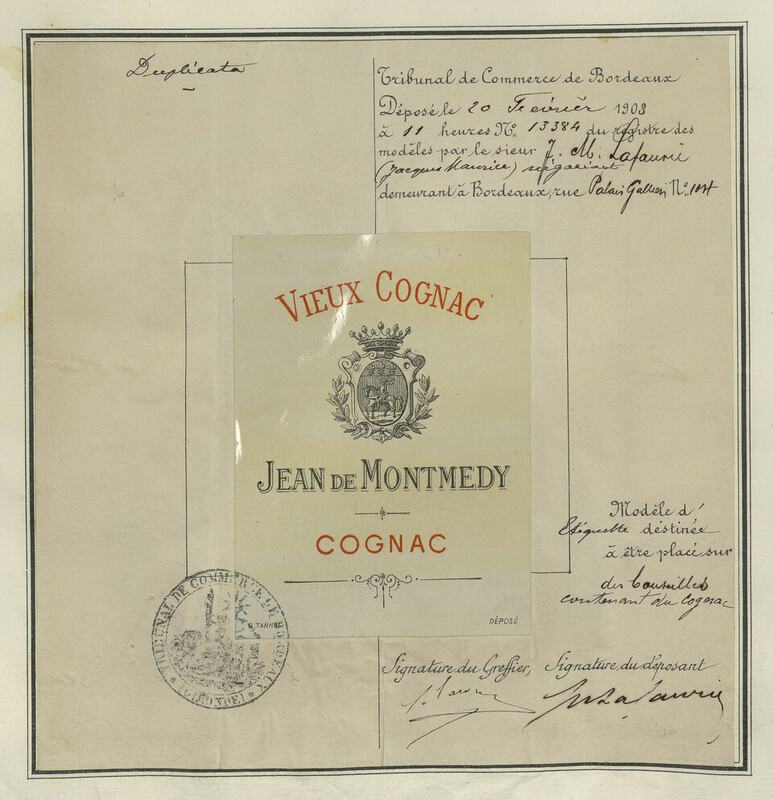 Duplicata
Tribunal de Commerce de Bordeaux
Déposé le 20 Février 1903
à 11 heures No. 13384 du registre des
modèles par le sieur J. M. Lafaurie
(Jacques Maurice) négociant
demeurant à Bordeaux, rue Palais Gallien No.
VIEUX COGNAC
JEAN DE MONTMEDY
COGNAC
DÉPOSÉ
Modèle d'
Etiquette destinée
à être placé sur
des bouteilles
contenant du cognac
TRIBUNAL DE COMMERCE DE BORDEAUX
(GIRONDE)
Signature du Greffier,
Signature du déposant